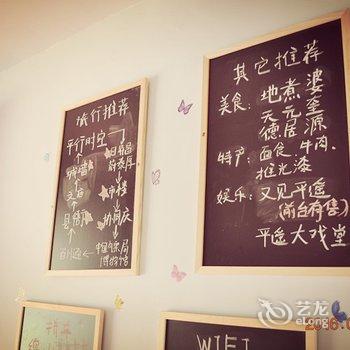 旅行推荐
平行时空
日昇昌
城墙
市楼
文庙
县衙
协同庆
中国镖局
博物馆
其它推荐
美食：地煮婆
天元奎
德居源
特产：面食、牛肉、
推光漆
娱乐：又见平遥
（前台有售）
平遥大戏堂
拼车
WIFI
艺龙
eLong.com